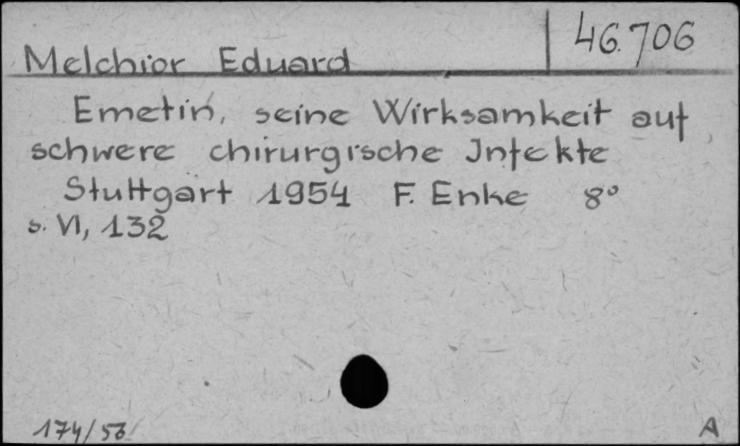 46.706
Melchior Eduard
Emetin, seine Wirksamkeit auf
schwere chirurgische Infekte
Stuttgart 1954 F. Enke 8°
s. VI, 132
174/56
A